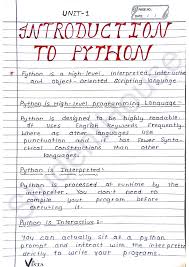 UNIT-1
PAGE NO.
DATE
INTRODUCTION
TO PYTHON
* Python is a high-level, interpreted, interactive
and object-oriented scripting language
Python is High-level programming Language:
Python is designed to be highly readable.
It uses English keywords frequently
where as other languages use
punctuation and it has fewer syntac-
tical constructions than other
languages.
Python is Interpreted:
Python is processed at runtime by the
interpreter. You don't need to
compile your program before
executing it.
Python is Interactive:
You can actually sit at a python
prompt and interact with the interpreter
directly to write your programs.